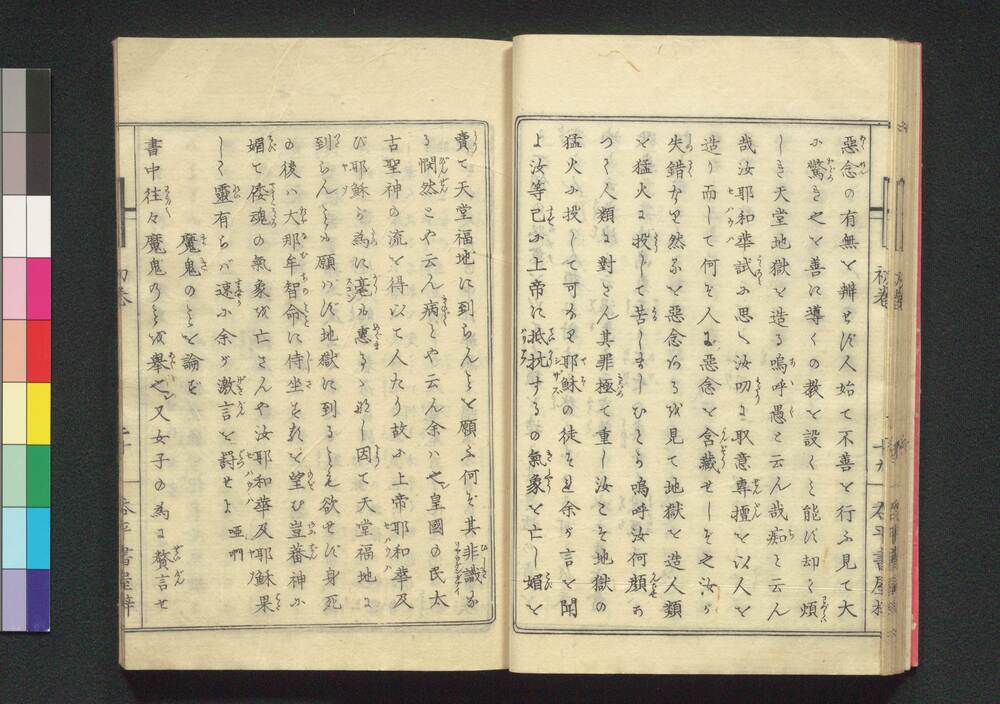 惡念の有無を辨せず人始て不善を行ふ見て大
に驚き之を善に導くの教を設くる能ず却て煩
しき天堂地獄を造る嗚呼愚と云ん哉痴と云ん
哉汝耶和華試に思へ汝叨に取意專擅を以人を
造り而して何ぞ人に惡念を含藏せしぞ之汝が
失錯なり然るを惡念ある我見て地獄を造人類
を猛火に投して苦しましむるか嗚呼汝何顔あ
つて人類に對とん其罪極て重し汝こそ地獄の
猛火に投して可なり耶穌の徒を且余が言を聞
よ汝等已に上帝に抵抗するの氣象を亡し媚を
賣て天堂福地に到らんとを願ふ何ぞ其非識な
る憫然とや云ん病とや云ん余ハ也皇國の民太
古聖神の流を得以て人たり故に上帝耶和華及
び耶穌が為に毫も惠るゝ難し因て天堂福地に
到らんとも願ハず地獄に到るとも欲せず身死
の後ハ大那牟智命に侍坐せんを望む豈蕃神に
媚て倭魂の氣象を亡さんや汝耶和華及耶穌果
して靈有らバ速に余が激言を罰せよ 啞們
魔鬼のとを論ず
書中往々魔鬼のとを舉ぐ又女子の為に贅言せ
初卷
春平書屋梓
初卷
春平書屋梓